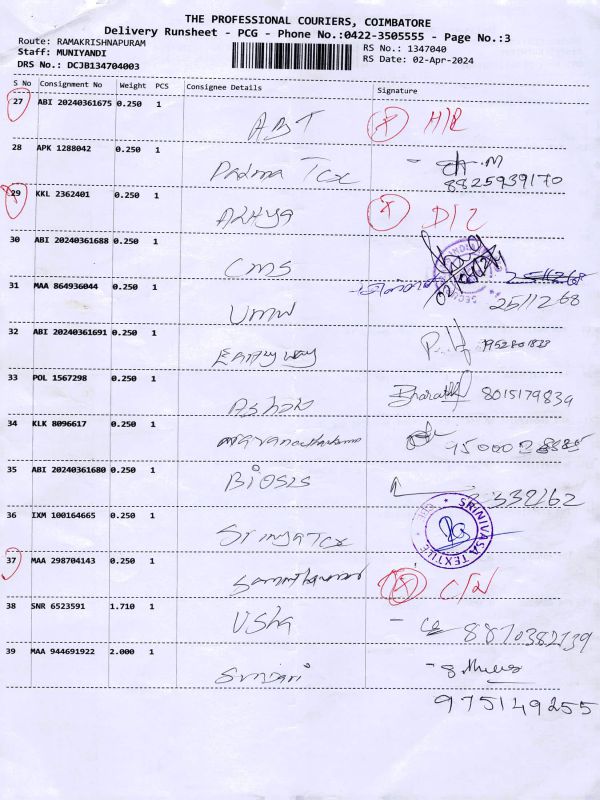 THE PROFESSIONAL COURIERS, COIMBATORE
Delivery Runsheet - PCG - Phone No.:0422-3505555 - Page No.:3
Route: RAMAKRISHNAPURAM
Staff: MUNIYANDI
DRS No.: DCJB134704003
RS No.: 1347040
RS Date: 02-Apr-2024
S No Consignment No Weight PCS Consignee Details Signature
27 ABI 20240361675 0.250 1 ABT
28 APK 1288042 0.250 1 Padma Tex 8825939170
29 KKL 2362401 0.250 1 D/L
30 ABI 20240361688 0.250 1 CMS
31 MAA 864936044 0.250 1 UMW 251268
32 ABI 20240361691 0.250 1
33 POL 1567298 0.250 1 Ashok Bharath 8015179839
34 KLK 8096617 0.250 1
35 ABI 20240361680 0.250 1 BIOSIS
36 IXM 100164665 0.250 1 SRINIVASA TEXTILE
37 MAA 298704143 0.250 1
38 SNR 6523591 1.710 1 Usha 8870382139
39 MAA 944691922 2.000 1
975149255